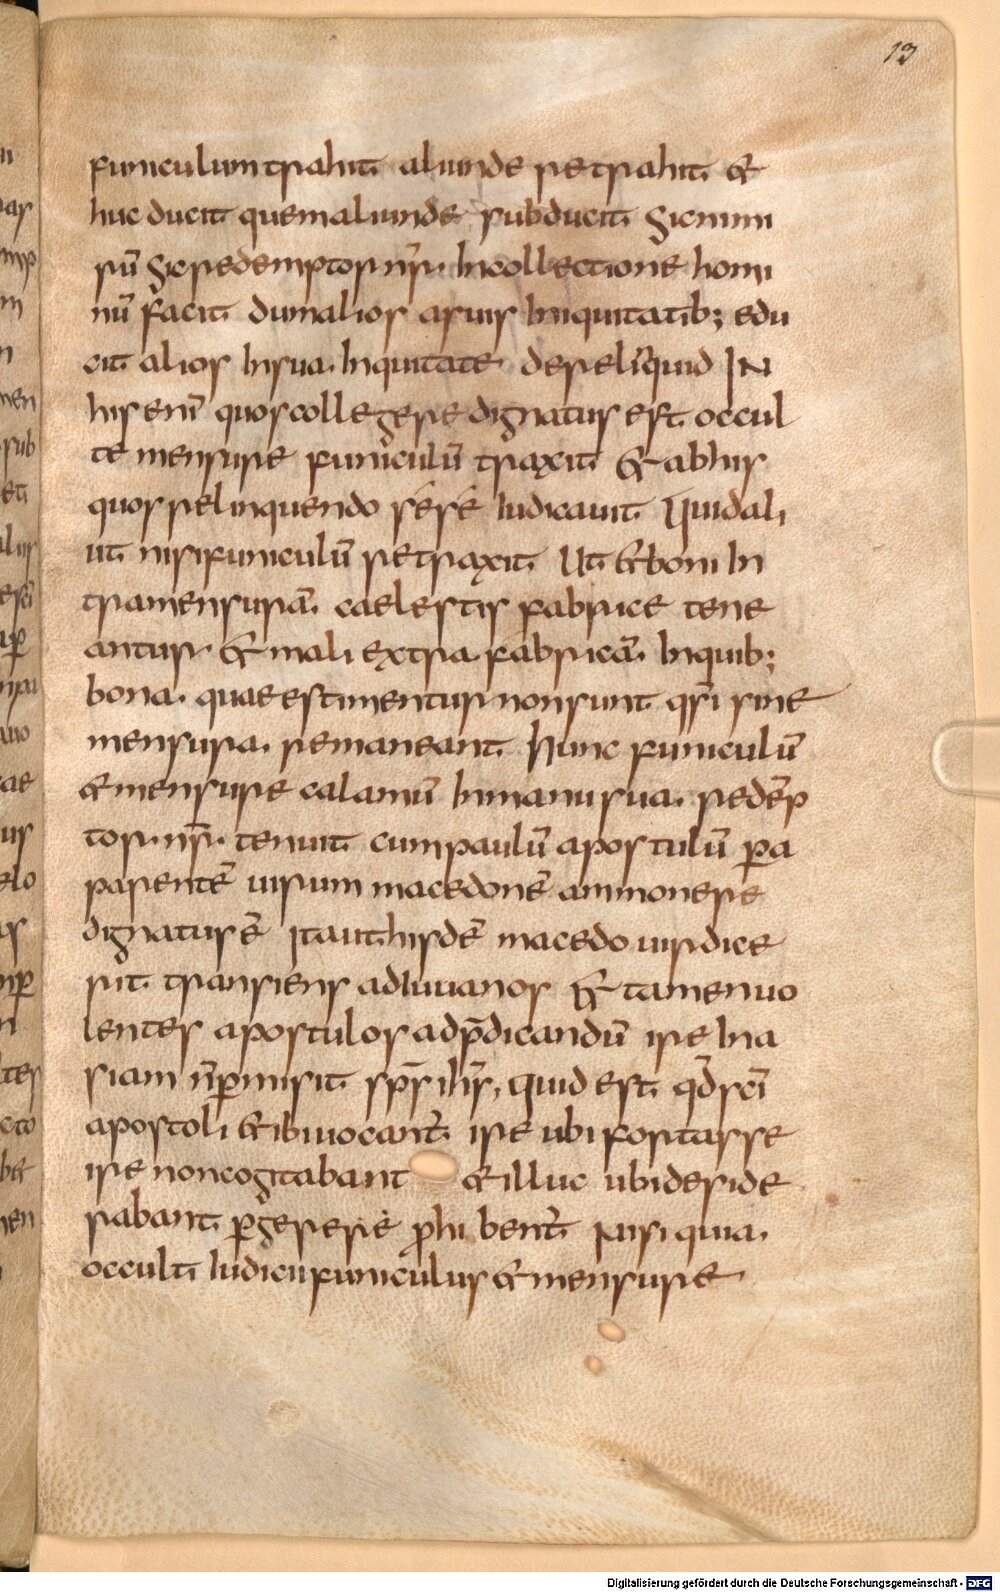 13
funiculum trahit aliunde retrahit &
huc ducit quem aliunde subducit. Sic nimi
rū Sic redemptor nr̄. In collectione homi
nū facit dum alios a suis iniquitatib; edu
cit alios in sua. Inquitate dereliquid IN
his enī quos collegere dignatus est occul
te mensure funiculū traxit & ab his
quos relinquendo sese iudicauit Quid ali
ut nisi funiculū retraxit Ut & boni in
tra mensurā. caelestis fabrice tene
antur. & mali extra fabricā. In quib;
bona. quae estimentur non sunt qsī sine
mensura. remaneant Hunc funiculū
& mensure calamū in manu sua. redēp
tor. nr̄. tenuit cum paulū apostulū pa
parentē uirum macedonē ammonere
dignatus ē Ita ut hisdē macedo uir dice
rit transiens adiuua nos & tamen uo
lentes apostulos ad p̄dicandū ire in a
siam n̄ pmisit sp̄s ih̄s, quid est qđ sc̄i
apostoli & ibi uocant̄ ire ubi forsitasse
ire non cogitabant & illuc ubi deside
rabant pgere rere prohibent̄ nisi quia.
occulti iudicii funiculus & mensure
Digitalisierung gefördert durch die Deutsche Forschungsgemeinschaft - DFG